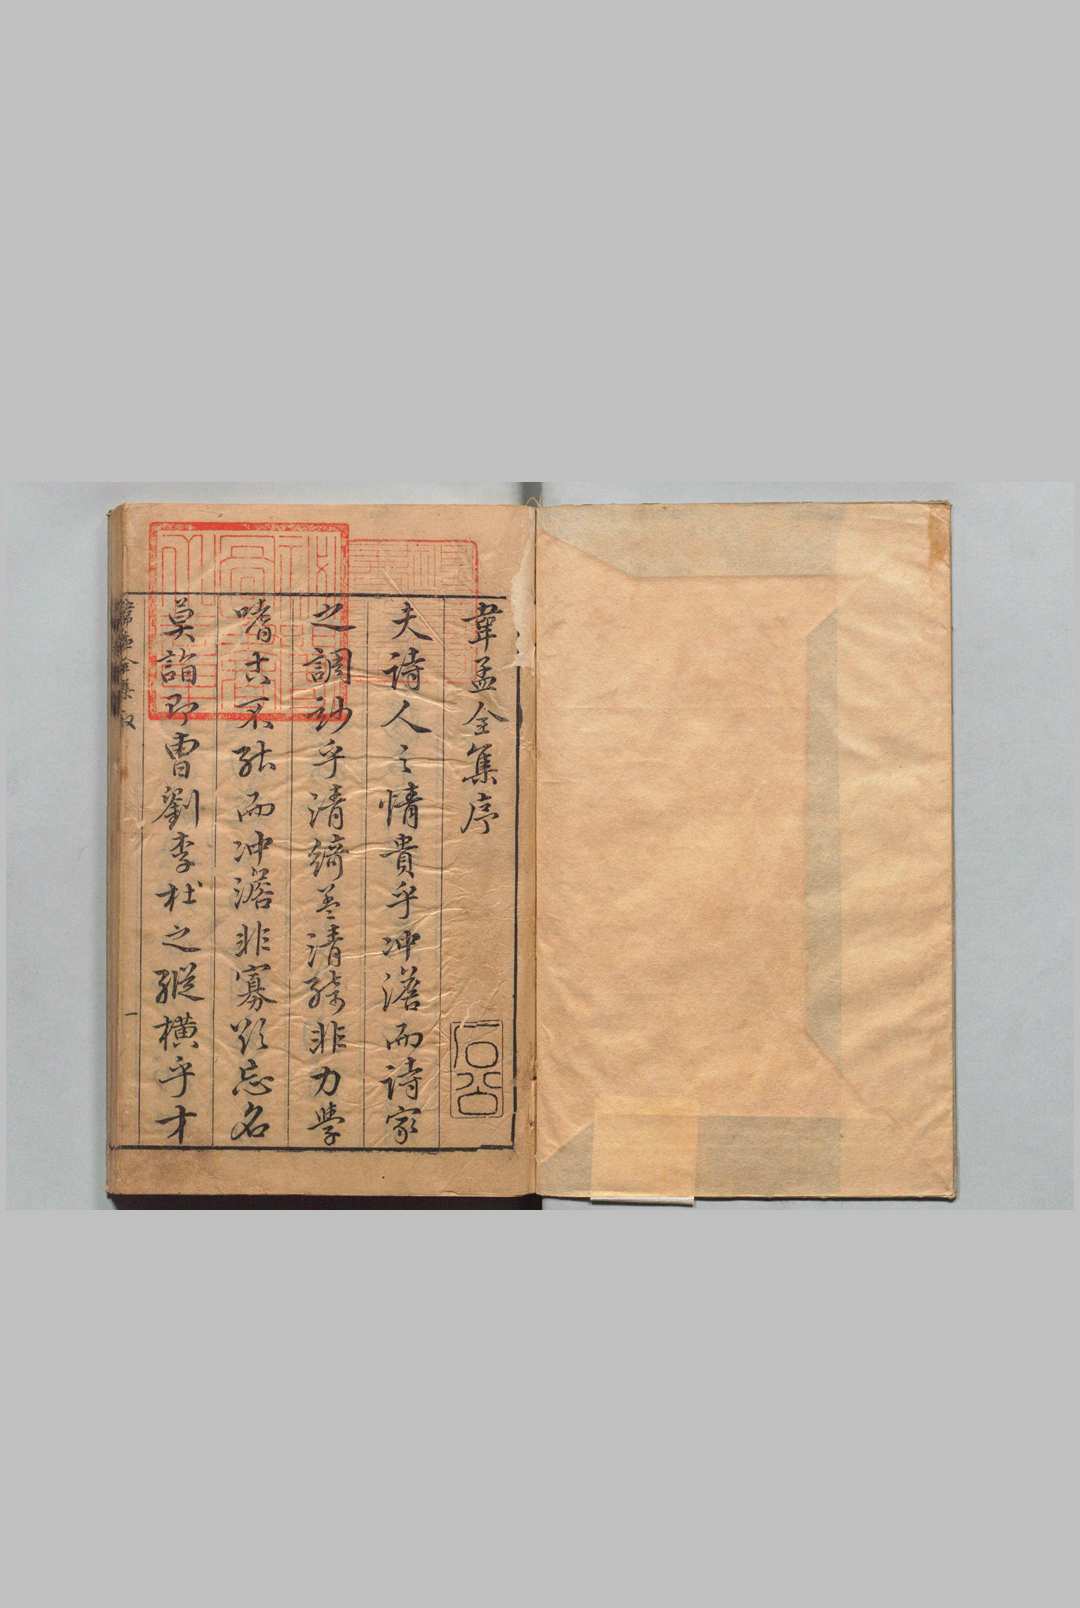 韋孟全集序
石公
夫詩人之情貴乎冲澹而詩家
之調妙乎清綺蓋清綺非力學
嗜古不能而冲澹非寡欲忘名
莫詣即曹劉李杜之縱橫乎才
韋孟全集
一